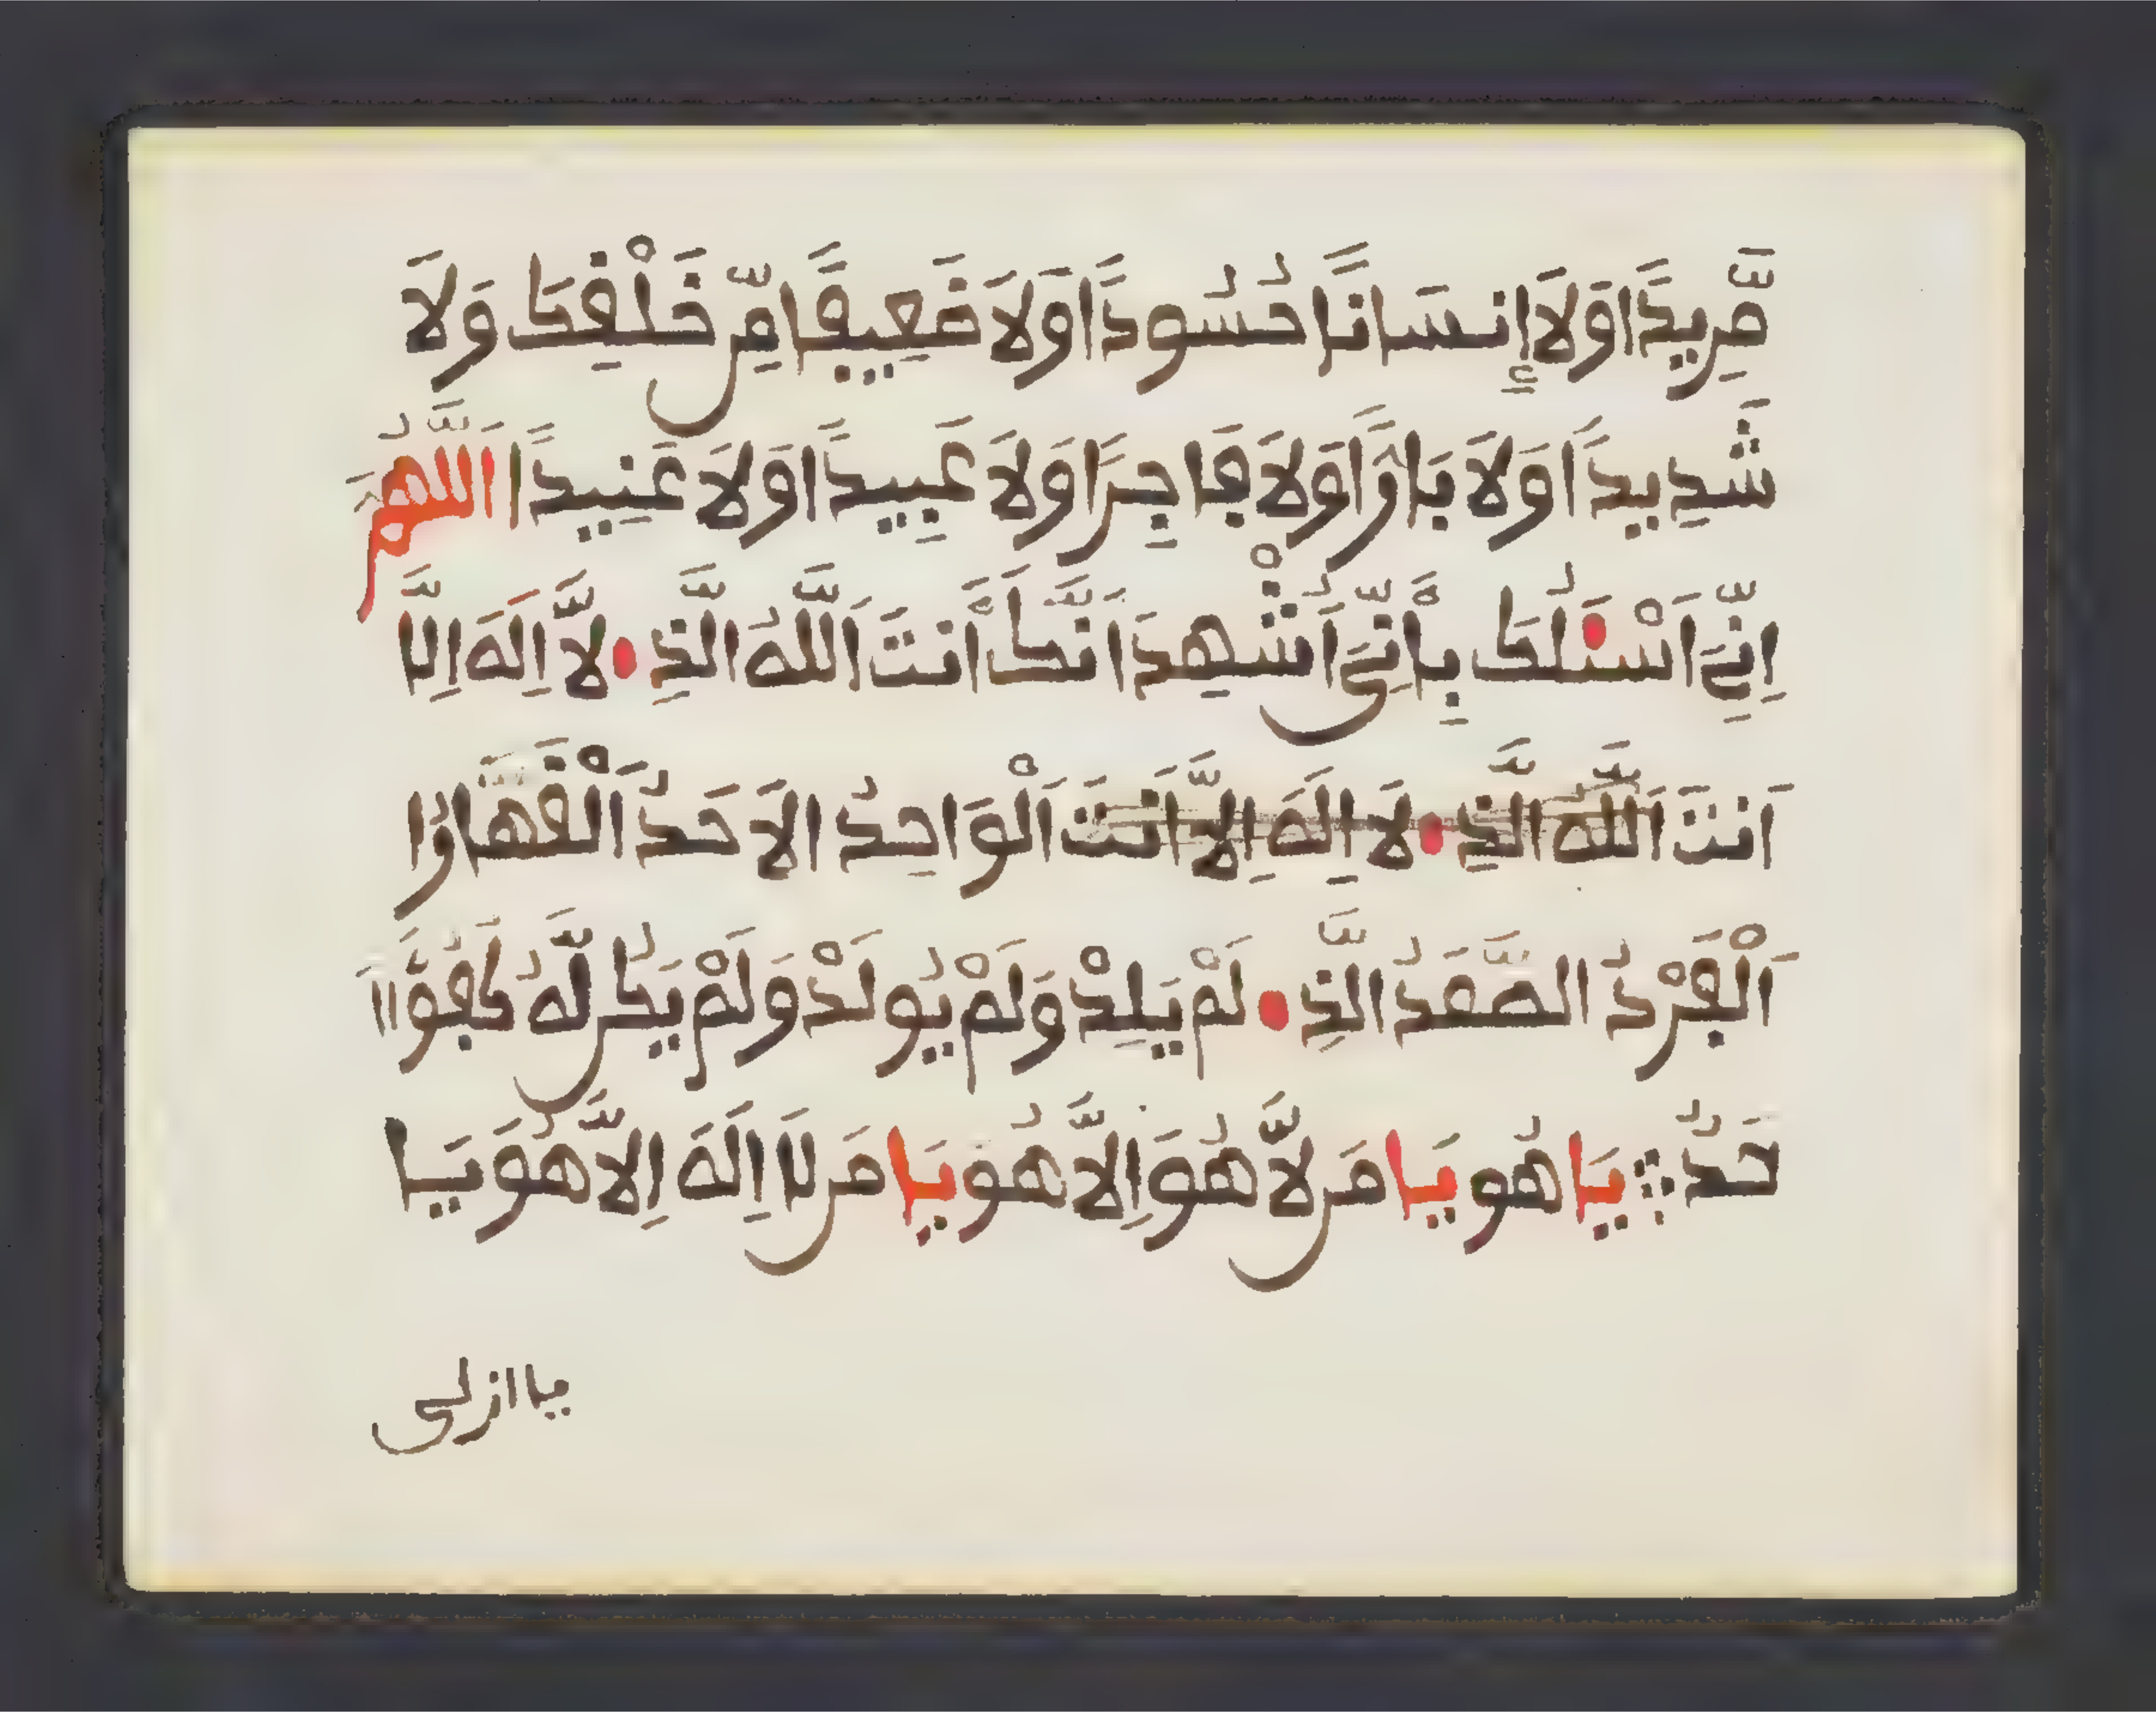 مَّرِيدًا وَلَا إِنسَانًا حَسُودًا وَلَا ضَعِيفًا مِّنْ خَلْفِكَ وَلَا
شَدِيدًا وَلَا بَارًّا وَلَا فَاجِرًا وَلَا عَبِيدًا وَلَا عَنِيدًا اَللَّهُمَّ
اِنِّيَ اَسْـَٔلُكَ بِأَنِّيَ أَشْهِدَ اَنَّكَ أَنتَ اَللَّهُ الَّذِ لَّا اِلَهَ اِلَّا
اَنتَ اَللَّهُ الَّذِ لَا اِلَهَ اِلَّا اَنتَ اَلْوَاحِدُ الاَحَدُ اَلْقَهَّارُ ا
اَلْفَرْدُ الصَّمَدُ الَّذِ لَمْ يَلِدْ وَلَمْ يُولَدْ وَلَمْ يَكُن لَّهُ كُفُوًا اَ
حَدٌ يَا هُو يَا مَن لَّا هُوَ اِلَّا هُو يَا مَن لَا اِلَهَ اِلَّا هُوَ يَا
يا ازلى